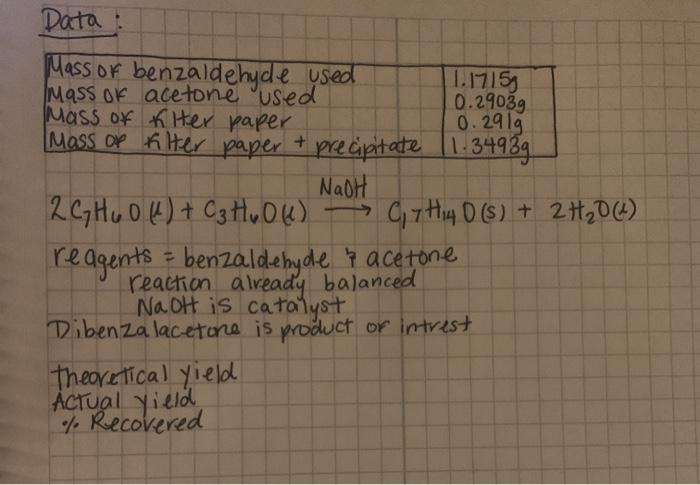 Data :
Mass of benzaldehyde used 1.1715g
Mass of acetone used 0.2903g
Mass of filter paper 0.291g
Mass of filter paper + precipitate 1.3493g
NaOH
2C₇H₆O(l) + C₃H₆O(l) → C₁₇H₁₄O(s) + 2H₂O(l)
reagents = benzaldehyde & acetone
reaction already balanced
NaOH is catalyst
Dibenzalacetone is product of intrest
theoretical yield
Actual yield
% Recovered